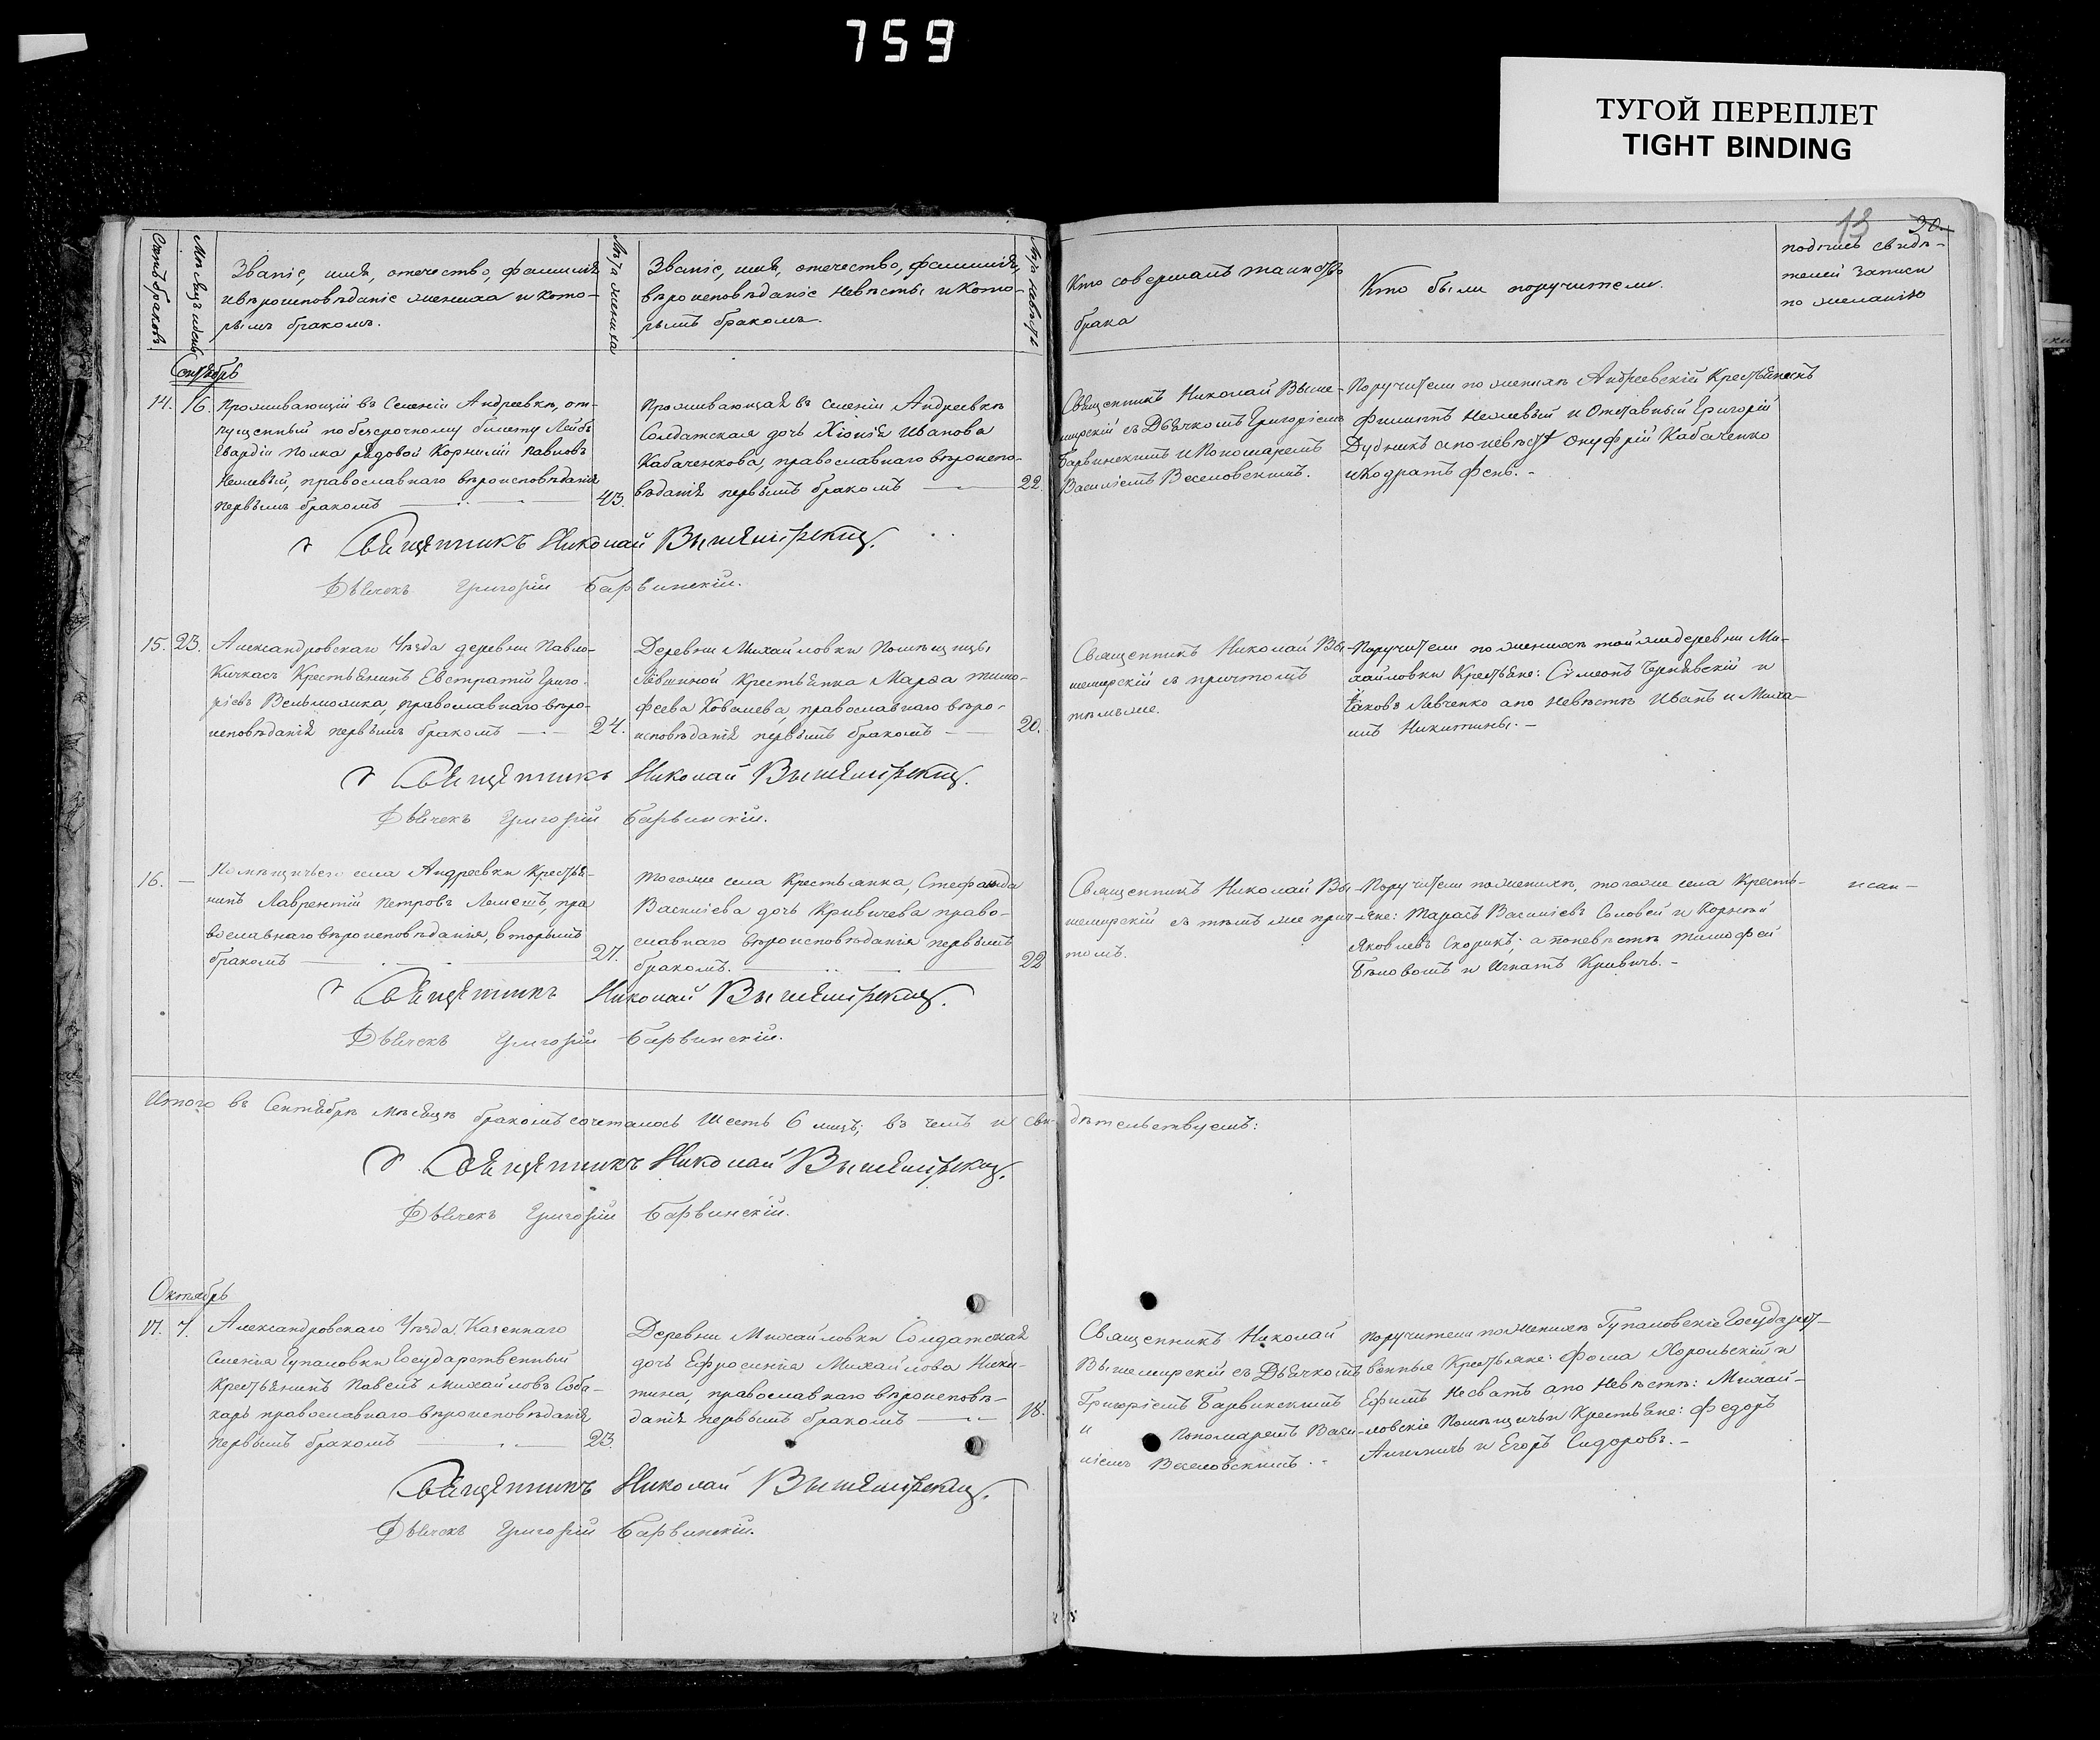 759
ТУГОЙ ПЕРЕПЛЕТ
TIGHT BINDING
13 30.
Счетъ браковъ.
Мѣсяцъ и день
Званіе, имя, отечество, фамилія
и вѣроисповѣданіе жениха и кото-
рымъ бракомъ.
Лѣта жениха
Званіе, имя, отечество, фамилія,
вѣроисповѣданіе невѣсты и кото-
рымъ бракомъ.
Лѣта невѣсты
Кто совершалъ таинство
брака
Кто были поручители.
подпись свидѣ-
телей записи
по желанію
Сентябрь
14. 16. Проживающій въ Селеніи Андреевки, от-
пущенный по безсрочному билету Лейбъ
Гвардіи полка рядовой Корнилій Павловъ
Нежевый, православнаго вѣроисповѣданія
первымъ бракомъ 43.
Проживающая въ Селеніи Андреевки
Солдатская дочь Хіонія Иванова
Кабаченкова, православнаго вѣроиспо-
вѣданія первымъ бракомъ 22.
Священникъ Николай Выше-
мирскій съ Дьячкомъ Григоріемъ
Барвинскимъ и Пономаремъ
Василіемъ Веселовскимъ.
Поручители по женихѣ Андреевскій Крестьянинъ
Филиппъ Нежевый и Отставный Григорій
Дудникъ а по невѣстѣ Онуфрій Кабаченко
и Кодратъ Фень. -
Священникъ Николай Вышемирскій.
Дьячекъ Григорій Барвинскій.
15. 23. Александровскаго Уѣзда деревни Павло-
Кичкасъ Крестьянинъ Евстратій Григо-
ріевъ Вельможка, православнаго вѣро-
исповѣданія первымъ бракомъ 24.
Деревни Михайловки Помѣщицы
Лёвшиной Крестьянка Марѳа Тимо-
феева Ковалева, православнаго вѣро-
исповѣданія первымъ бракомъ 20.
Священникъ Николай Вы-
шемирскій съ причтомъ
тѣмъ же.
Поручители по женихѣ той же деревни Ми-
хайловки Крестьяне: Симеонъ Чернявскій и
Іаковъ Левченко а по невѣстѣ Иванъ и Миха-
илъ Никитины. -
Священникъ Николай Вышемирскій.
Дьячекъ Григорій Барвинскій.
16. — Помѣщичьего села Андреевки Крестья-
нинъ Лаврентій Петровъ Лемешъ, пра
вославнаго вѣроисповѣданія, вторымъ
бракомъ 27.
Того же села Крестьянка, Стефанида
Василіева дочь Кривичева право-
славнаго вѣроисповѣданія первымъ
бракомъ. 22
Священникъ Николай Вы-
шемирскій съ тѣмъ же прич-
томъ.
Поручители по женихѣ, того же села Кресть-
яне: Тарасъ Василіевъ Соловей и Корнѣй
Яковлевъ Скорикъ; а по невѣстѣ Тимофей
Бѣловолъ и Игнатъ Кривичъ. -
Священникъ Николай Вышемирскій.
Дьячекъ Григорій Барвинскій.
Итого въ Сентябрѣ мѣсяцѣ бракомъ сочеталось шесть 6 лицъ; въ чемъ и сви- дѣтельствуемъ:
Священникъ Николай Вышемирскій.
Дьячекъ Григорій Барвинскій.
Октябрь
17. 7. Александровскаго Уѣзда. Казеннаго
Селенія Гупаловки Государственный
Крестьянинъ Павелъ Михайловъ Соба-
карь православнаго вѣроисповѣданія
первымъ бракомъ 23.
Деревни Михайловки Солдатская
дочь Ефросинія Михайлова Ники-
тина, православнаго вѣроисповѣ-
данія первымъ бракомъ 18.
Священникъ Николай
Вышемирскій съ Дьячкомъ
Григоріемъ Барвинскимъ
и Пономаремъ Васи-
ліемъ Веселовскимъ.
Поручители по женихѣ Гупаловскіе Государст-
венные Крестьяне: Фома Хорольскій и
Ефимъ Несватъ а по невѣстѣ: Михай-
ловскіе Помѣщичьи Крестьяне: Федоръ
и Егоръ Сидоровъ. -
Священникъ Николай Вышемирскій.
Дьячекъ Григорій Барвинскій.